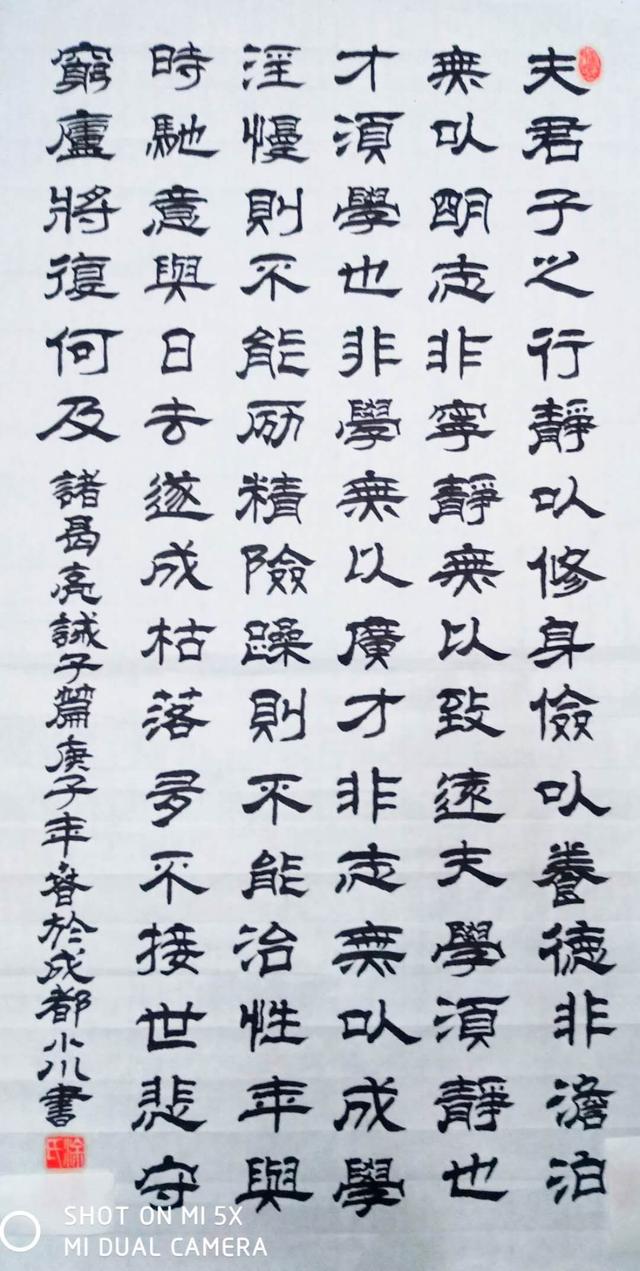 夫君子之行靜以修身儉以養德非澹泊
無以眀志非寧靜無以致遠夫學須靜也
才須學也非學無以廣才非志無以成學
淫慢則不能励精險躁則不能治性年與
時馳意與日去遂成枯落多不接世悲守
窮廬將復何及 諸曷亮誡子篇庚子年春於成都小川書
SHOT ON MI 5X
MI DUAL CAMERA